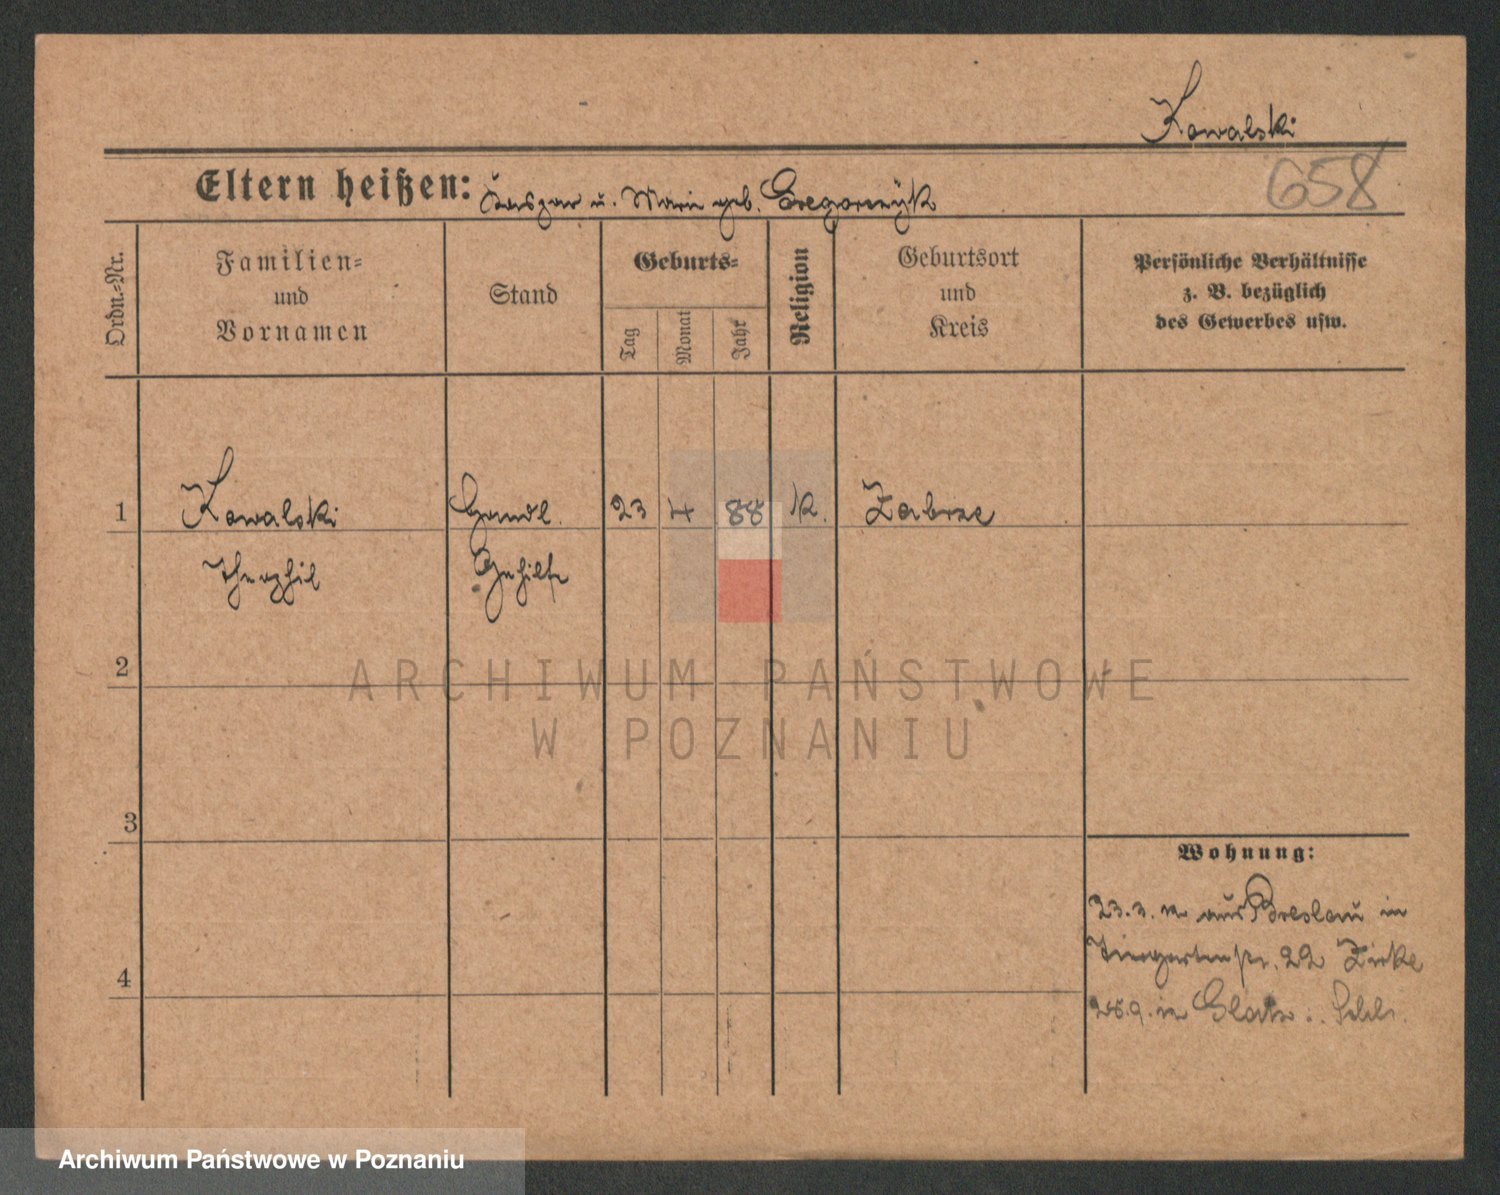 Kowalski
658
Eltern heißen: Kaspar u. Marie geb. Gregorczyk
Ordn.=Nr.
Familien=
und
Vornamen
Stand
Geburts=
Tag
Monat
Jahr
Religion
Geburtsort
und
Kreis
Persönliche Verhältnisse
z. B. bezüglich
des Gewerbes usw.
1 Kowalski Handl. 23 4 88 K. Zabrze
Theophil Gehilfe
2
ARCHIWUM PAŃSTWOWE
W POZNANIU
3
Wohnung:
23.3. aus Breslau in
Tiergartenstr. 22 Zirke
4
in Glatz i. Schl.
Archiwum Państwowe w Poznaniu